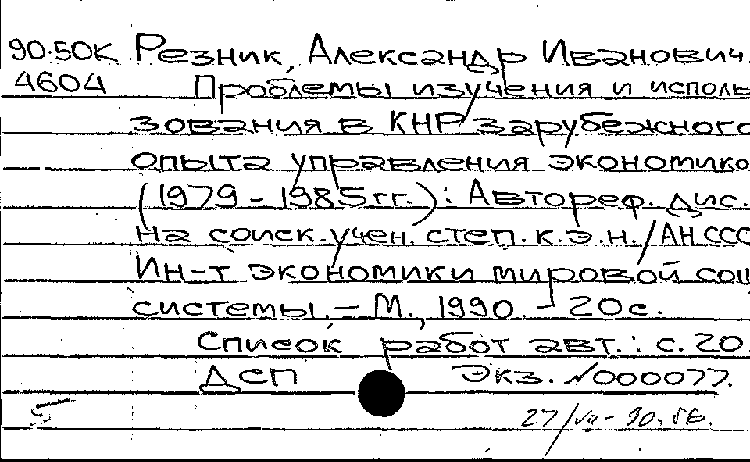 90-50К Резник, Александр Иванович.
4604 Проблемы изучения и исполь
зования в КНР зарубежного
опыта управления экономико
(1979-1985гг.): Автореф. дис.
на соиск. учен. степ. к.э.н./АН ССС
Ин-т экономики мировой соц
системы. - М., 1990. - 20с.
Список работ авт.: с. 20.
ДСП Экз. N000077.
5